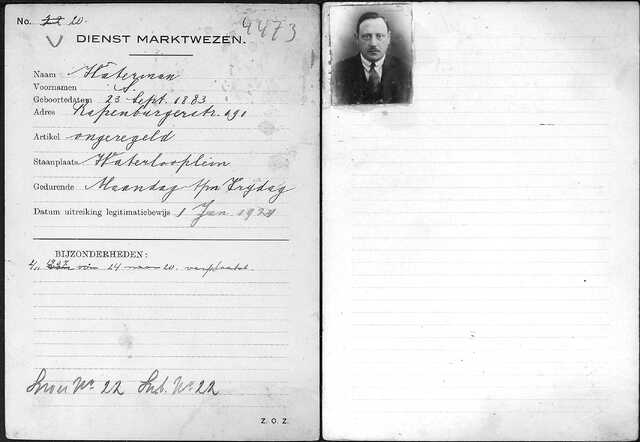 No. 22 20.
4473
DIENST MARKTWEZEN.
Naam Waterman
Voornamen S.
Geboortedatum 23 Sept. 1883
Adres Rapenburgerstr. 191
Artikel ongeregeld
Staanplaats Waterlooplein
Gedurende Maandag t/m Vrijdag
Datum uitreiking legitimatiebewijs 1 Jan. 1921
BIJZONDERHEDEN:
1927 van 24 naar 20. verplaatst.
No. 22 No. 22
Z. O. Z.